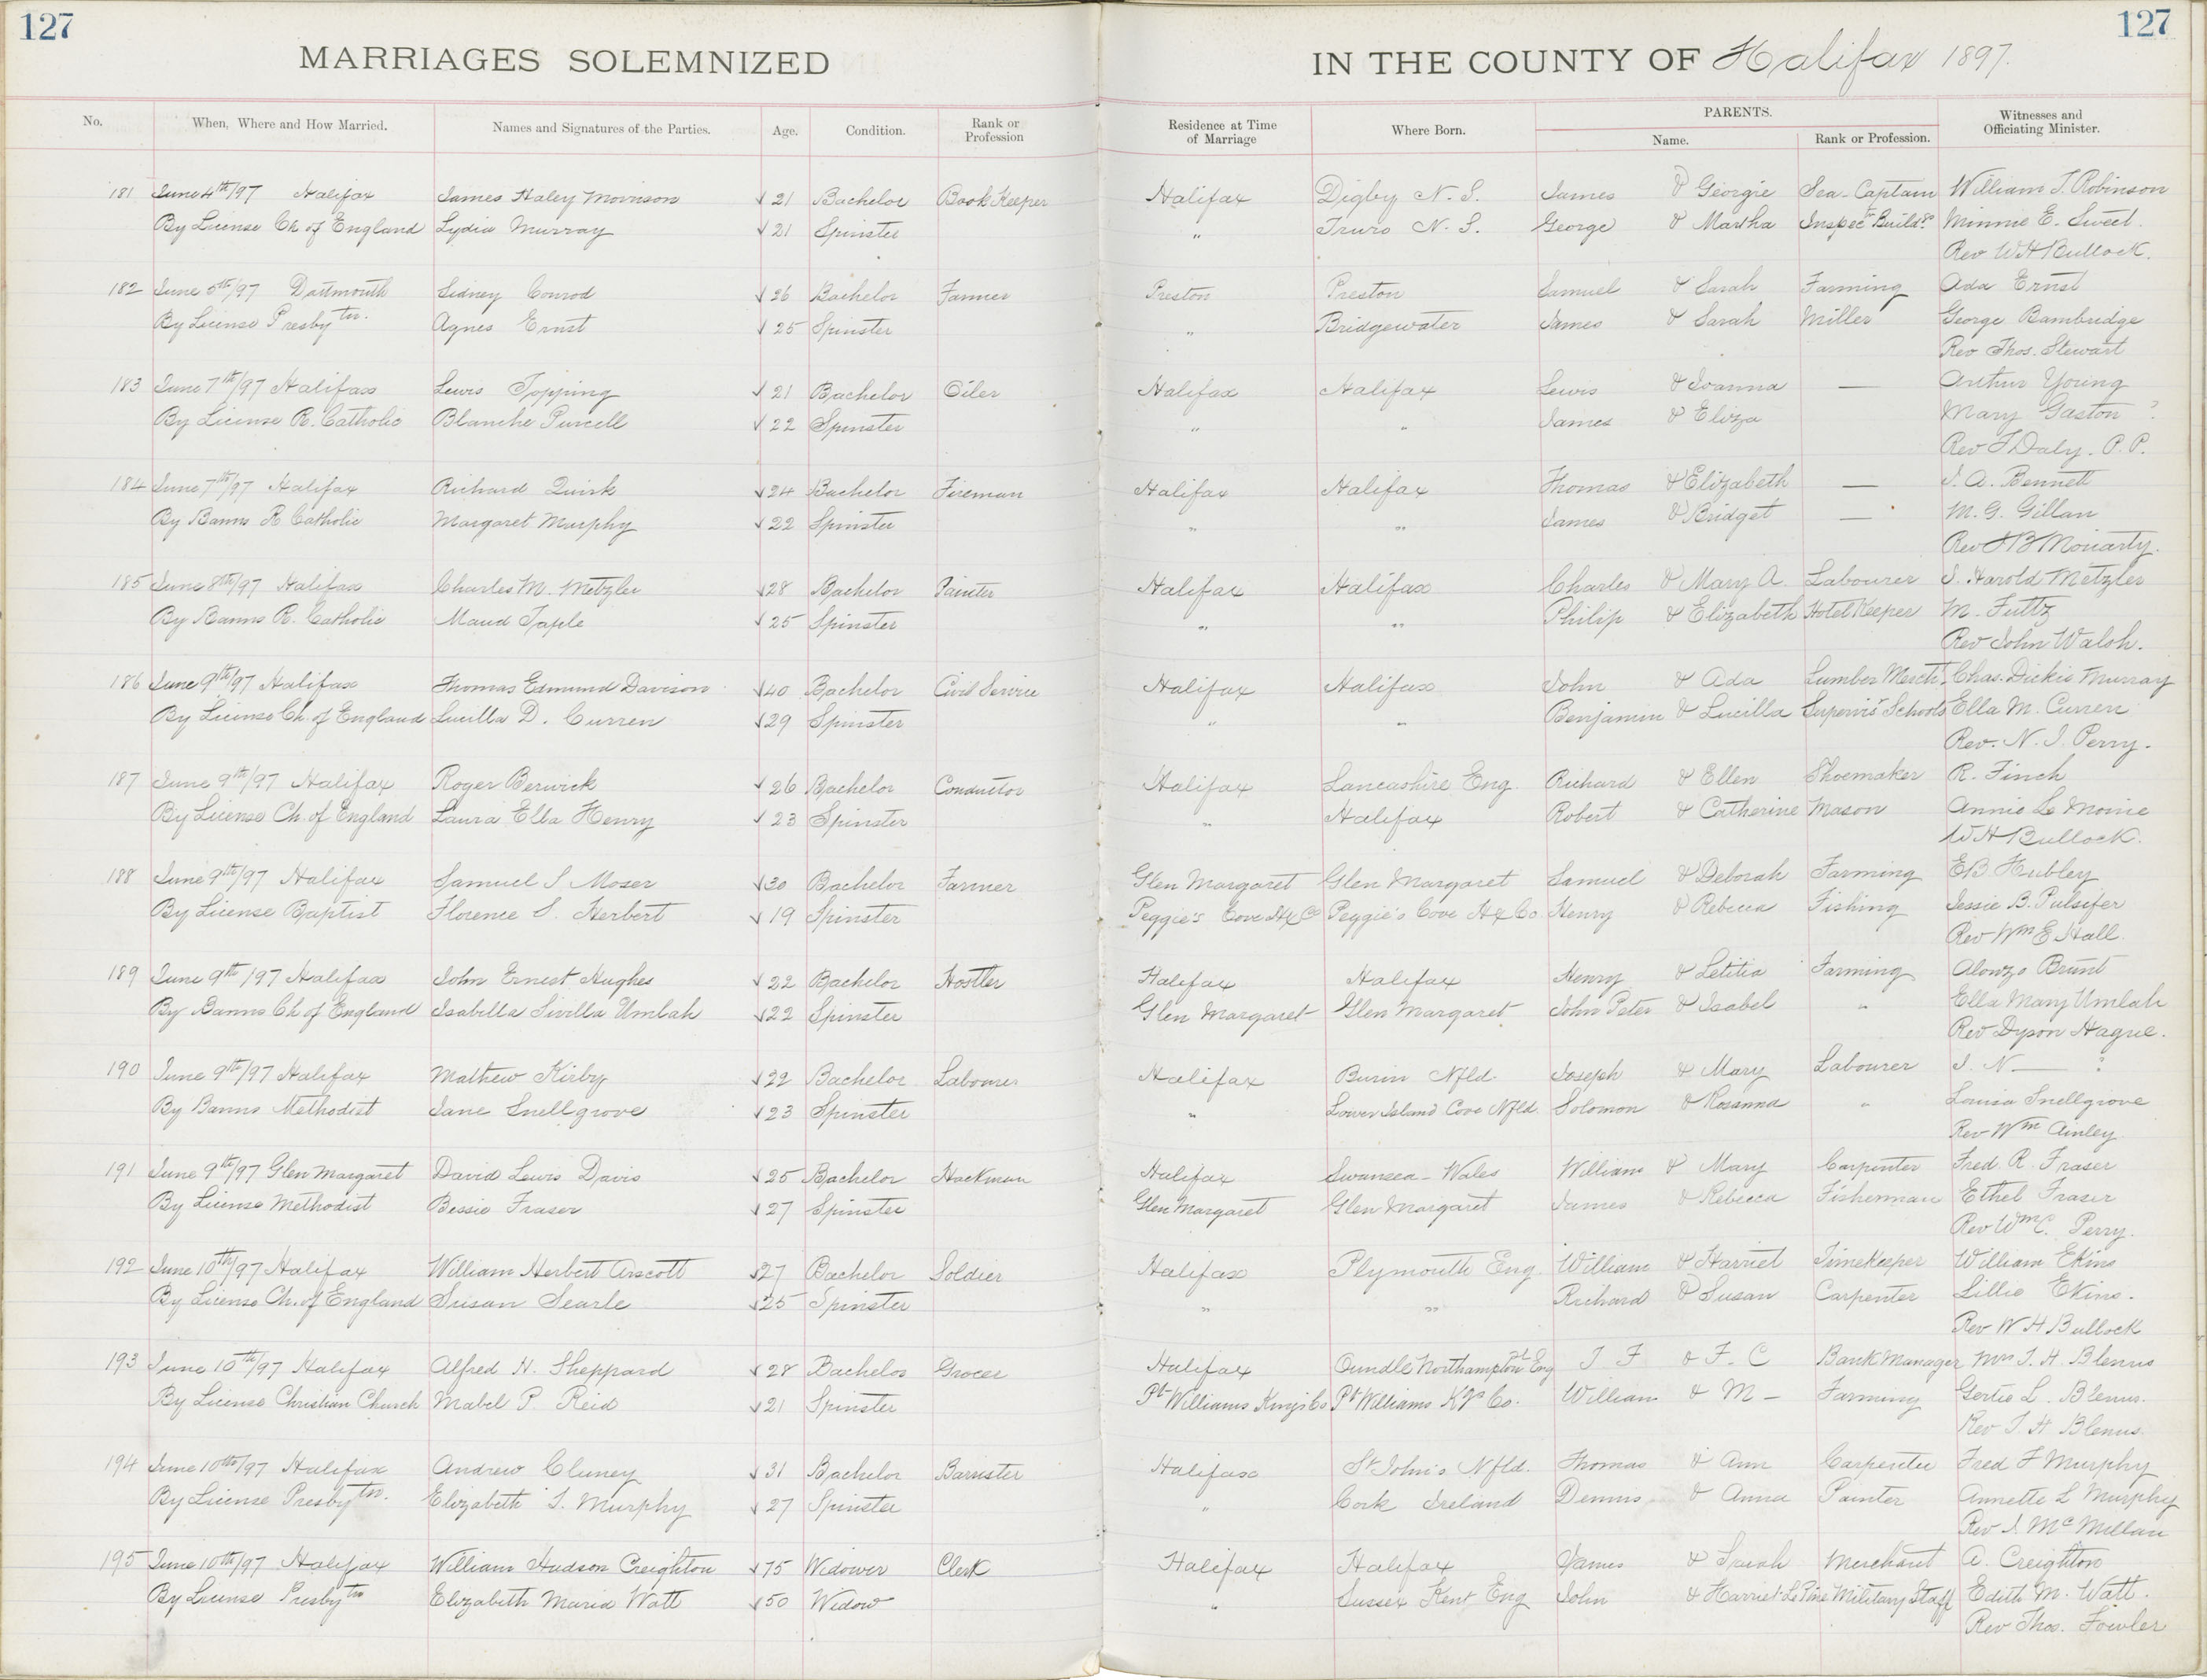 127
127
MARRIAGES SOLEMNIZED IN THE COUNTY OF Halifax 1897.
No. When, Where and How Married. Names and Signatures of the Parties. Age. Condition. Rank or Profession Residence at Time of Marriage Where Born. PARENTS. Name. Rank or Profession. Witnesses and Officiating Minister.
181 June 4th/97 Halifax James Haley Morrison √ 21 Bachelor Book Keeper Halifax Digby N. S. James & Georgie Sea-Captain William J. Robinson
By License Ch of England Lydia Murray √ 21 Spinster " Truro N. S. George & Martha Inspectr Buildgs Minnie E. Sweet.
Rev W H Bullock.
182 June 5th/97 Dartmouth Sidney Conrod √ 26 Bachelor Farmer Preston Preston Samuel & Sarah Farming Ada Ernst
By License Presbytn. Agnes Ernst √ 25 Spinster " Bridgewater James & Sarah Miller George Bambridge
Rev Thos. Stewart
183 June 7th/97 Halifax Lewis Topping √ 21 Bachelor Oiler Halifax Halifax Lewis & Joanna — Arthur Young
By License R. Catholic Blanche Purcell √ 22 Spinster " " James & Eliza Mary Gaston ?
Rev J Daly. P. P.
184 June 7th/97 Halifax Richard Quirk √ 24 Bachelor Fireman Halifax Halifax Thomas & Elizabeth — J. A. Bennett
By Banns R Catholic Margaret Murphy √ 22 Spinster " " James & Bridget — M. G. Gillan
Rev J B Moriarty.
185 June 8th/97 Halifax Charles M. Metzler √ 28 Bachelor Painter Halifax Halifax Charles & Mary A. Labourer J. Harold Metzler
By Banns R. Catholic Maud Taple √ 25 Spinster " " Philip & Elizabeth Hotel Keeper M. Fultz
Rev John Walsh.
186 June 9th/97 Halifax Thomas Edmund Davison √ 40 Bachelor Civil Service Halifax Halifax John & Ada Lumber Mercht. Chas. Dickie Murray
By License Ch. of England Lucilla D. Curren √ 29 Spinster " " Benjamin & Lucilla Supervisr Schools Ella M. Curren
Rev. N. I. Perry.
187 June 9th/97 Halifax Roger Berwick √ 26 Bachelor Conductor Halifax Lancashire Eng. Richard & Ellen Shoemaker R. Finch
By License Ch. of England Laura Elba Henry √ 23 Spinster " Halifax Robert & Catherine Mason Annie Le Moine
W H Bullock.
188 June 9th/97 Halifax Samuel S Moser √ 30 Bachelor Farmer Glen Margaret Glen Margaret Samuel & Deborah Farming E B Hubley
By License Baptist Florence S. Herbert √ 19 Spinster Peggie's Cove Hx Co Peggie's Cove Hx Co. Henry & Rebecca Fishing Jessie B. Pulsifer
Rev Wm E Hall.
189 June 9th /97 Halifax John Ernest Hughes √ 22 Bachelor Hostler Halifax Halifax Henry & Letitia Farming Alonzo Brunt
By Banns Ch of England Isabella Sivilla Umlah √ 22 Spinster Glen Margaret Glen Margaret John Peter & Isabel " Ella Mary Umlah
Rev Dyson Hague.
190 June 9th/97 Halifax Mathew Kirby √ 22 Bachelor Labourer Halifax Burin Nfld. Joseph & Mary Labourer J. N— ?
By Banns Methodist Jane Snellgrove √ 23 Spinster " Lower Island Cove Nfld. Solomon & Rosanna " Louisa Snellgrove
Rev Wm Ainley
191 June 9th/97 Glen Margaret David Lewis Davis √ 25 Bachelor Hackman Halifax Swansea - Wales William & Mary Carpenter Fred R. Fraser
By License Methodist Bessie Fraser √ 27 Spinster Glen Margaret Glen Margaret James & Rebecca Fisherman Ethel Fraser
Rev Wm C. Perry.
192 June 10th/97 Halifax William Herbert Arscott √ 27 Bachelor Soldier Halifax Plymouth Eng. William & Harriet Timekeeper William Ekins
By License Ch. of England Susan Searle √ 25 Spinster " " Richard & Susan Carpenter Lillie Ekins.
Rev W H Bullock
193 June 10th/97 Halifax Alfred H. Sheppard √ 28 Bachelor Grocer Halifax Oundle Northampton Eng J F & F. C Bank Manager Mrs T. H. Blenus
By License Christian Church Mabel P. Reid √ 21 Spinster Pt Williams Kings Co Pt Williams Kgs Co. William & M - Farming Gertie L. Blenus.
Rev T. H Blenus.
194 June 10th/97 Halifax Andrew Cluney √ 31 Bachelor Barrister Halifax St John's Nfld. Thomas & Ann Carpenter Fred F Murphy
By License Presbytn. Elizabeth J. Murphy √ 27 Spinster " Cork Ireland Dennis & Anna Painter Annette L Murphy
Rev J. McMillan
195 June 10th/97 Halifax William Hudson Creighton √ 75 Widower Clerk Halifax Halifax James & Sarah Merchant A. Creighton
By License Presbytn Elizabeth Maria Watt √ 50 Widow " Sussex Kent Eng John & Harriet Le Pine Military Staff Edith M. Watt.
Rev Thos. Fowler